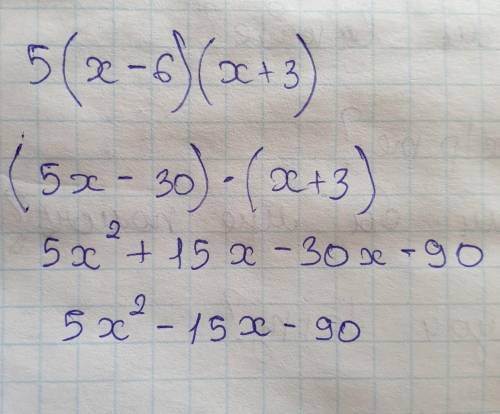 5(x-6)(x+3)
(5x-30)·(x+3)
5x²+15x-30x-90
5x²-15x-90